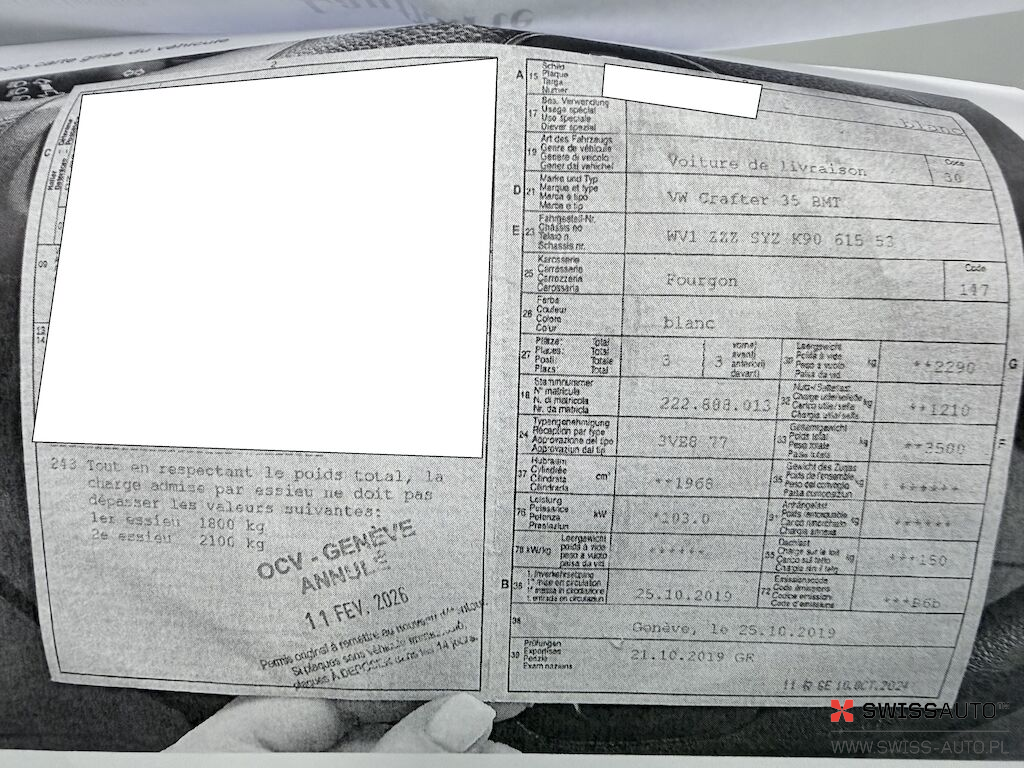 carte grise du véhicule
243 Tout en respectant le poids total, la
charge admise par essieu ne doit pas
dépasser les valeurs suivantes:
1er essieu 1800 kg
2e essieu 2100 kg
OCV - GENÈVE
ANNULÉ
11 FEV. 2026
Permis original à remettre au nouveau détenteur
Si plaques sans véhicule immatriculé,
plaques À DÉPOSER dans les 14 jours
A 15 Schild
Plaque
Targa
Numer
blanc
17 Bes. Verwendung
Usage spécial
Uso speciale
Diever spezial
19 Art des Fahrzeugs
Genre de véhicule
Genere di veicolo
Gener dal vehichel
Voiture de livraison
Code
30
D 21 Marke und Typ
Marque et type
Marca e tipo
Marca e tip
VW Crafter 35 BMT
E 23 Fahrgestell-Nr.
Châssis no
Telaio n.
Schassis nr.
WV1 ZZZ SYZ K90 615 53
25 Karosserie
Carrosserie
Carrozzeria
Carossaria
Fourgon
Code
147
26 Farbe
Couleur
Colore
Colur
blanc
27 Plätze: Total
Places: Total
Posti: Totale
Plazs: Total
3 ( 3 vorne)
avant)
anteriori)
davant)
30 Leergewicht
Poids à vide
Peso a vuoto
Paisa da vid
kg
**2290
G
18 Stammnummer
N° matricule
N. di matricola
Nr. da matricla
222.888.013
32 Nutz-/Sattellast
Charge utile/sellette
Carico utile/sella
Chargia utila/sella
kg
**1210
24 Typengenehmigung
Réception par type
Approvazione del tipo
Approvaziun dal tip
3VE8 77
33 Gesamtgewicht
Poids total
Peso totale
Paisa totala
kg
**3500
F
37 Hubraum
Cylindrée
Cilindrata
Cilindrada
cm³
**1968
35 Gewicht des Zuges
Poids de l'ensemble
Peso del convoglio
Paisa cumposiziun
kg
******
76 Leistung
Puissance
Potenza
Prestaziun
kW
*103.0
31 Anhängelast
Poids remorquable
Carico rimorchiato
Chargia annexa
kg
******
78 kW/kg Leergewicht
poids à vide
peso a vuoto
paisa da vid
******
55 Dachlast
Charge sur le toit
Carico sul tetto
Chargia sin il tetg
kg
***150
B 36 1. Inverkehrsetzung
1re mise en circulation
1a messa in circolazione
1. entrada en circulaziun
25.10.2019
72 Emissionscode
Code émissions
Codice emissioni
Code d'emissiuns
***B6b
38 Genève, le 25.10.2019
39 Prüfungen
Expertises
Perizie
Examinaziuns
21.10.2019 GE
GE 10.OCT.2024
SWISSAUTO
WWW.SWISS-AUTO.PL